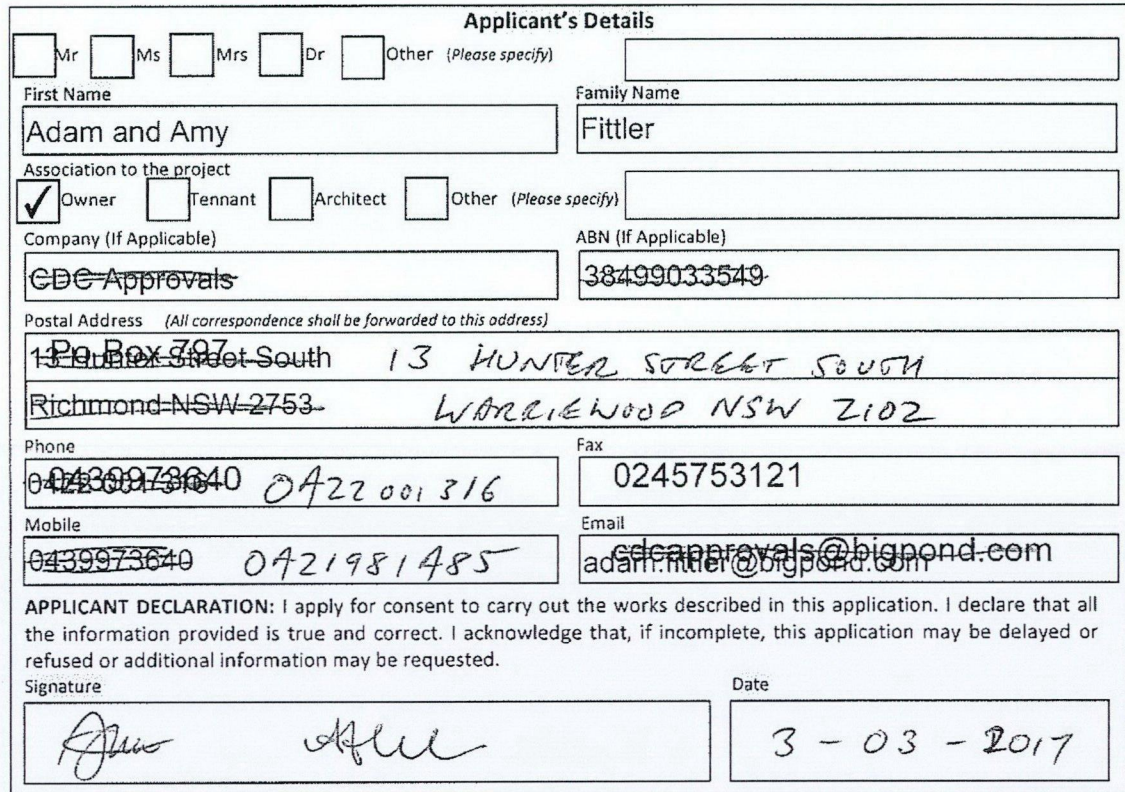 Applicant's Details
Mr Ms Mrs Dr Other (Please specify)
First Name Family Name
Adam and Amy Fittler
Association to the project
✓ Owner Tennant Architect Other (Please specify)
Company (If Applicable) ABN (If Applicable)
CDC Approvals 38499033549
Postal Address (All correspondence shall be forwarded to this address)
Po Box 797
13 Hunter Street South 13 HUNTER STREET SOUTH
Richmond NSW 2753 WARRIEWOOD NSW 2102
Phone Fax
0439973640 0422 001 316 0422 001 316 0245753121
Mobile Email
0439973640 0421981485 cdcapprovals@bigpond.com
adam.fittler@bigpond.com
APPLICANT DECLARATION: I apply for consent to carry out the works described in this application. I declare that all
the information provided is true and correct. I acknowledge that, if incomplete, this application may be delayed or
refused or additional information may be requested.
Signature Date
3 - 03 - 2017